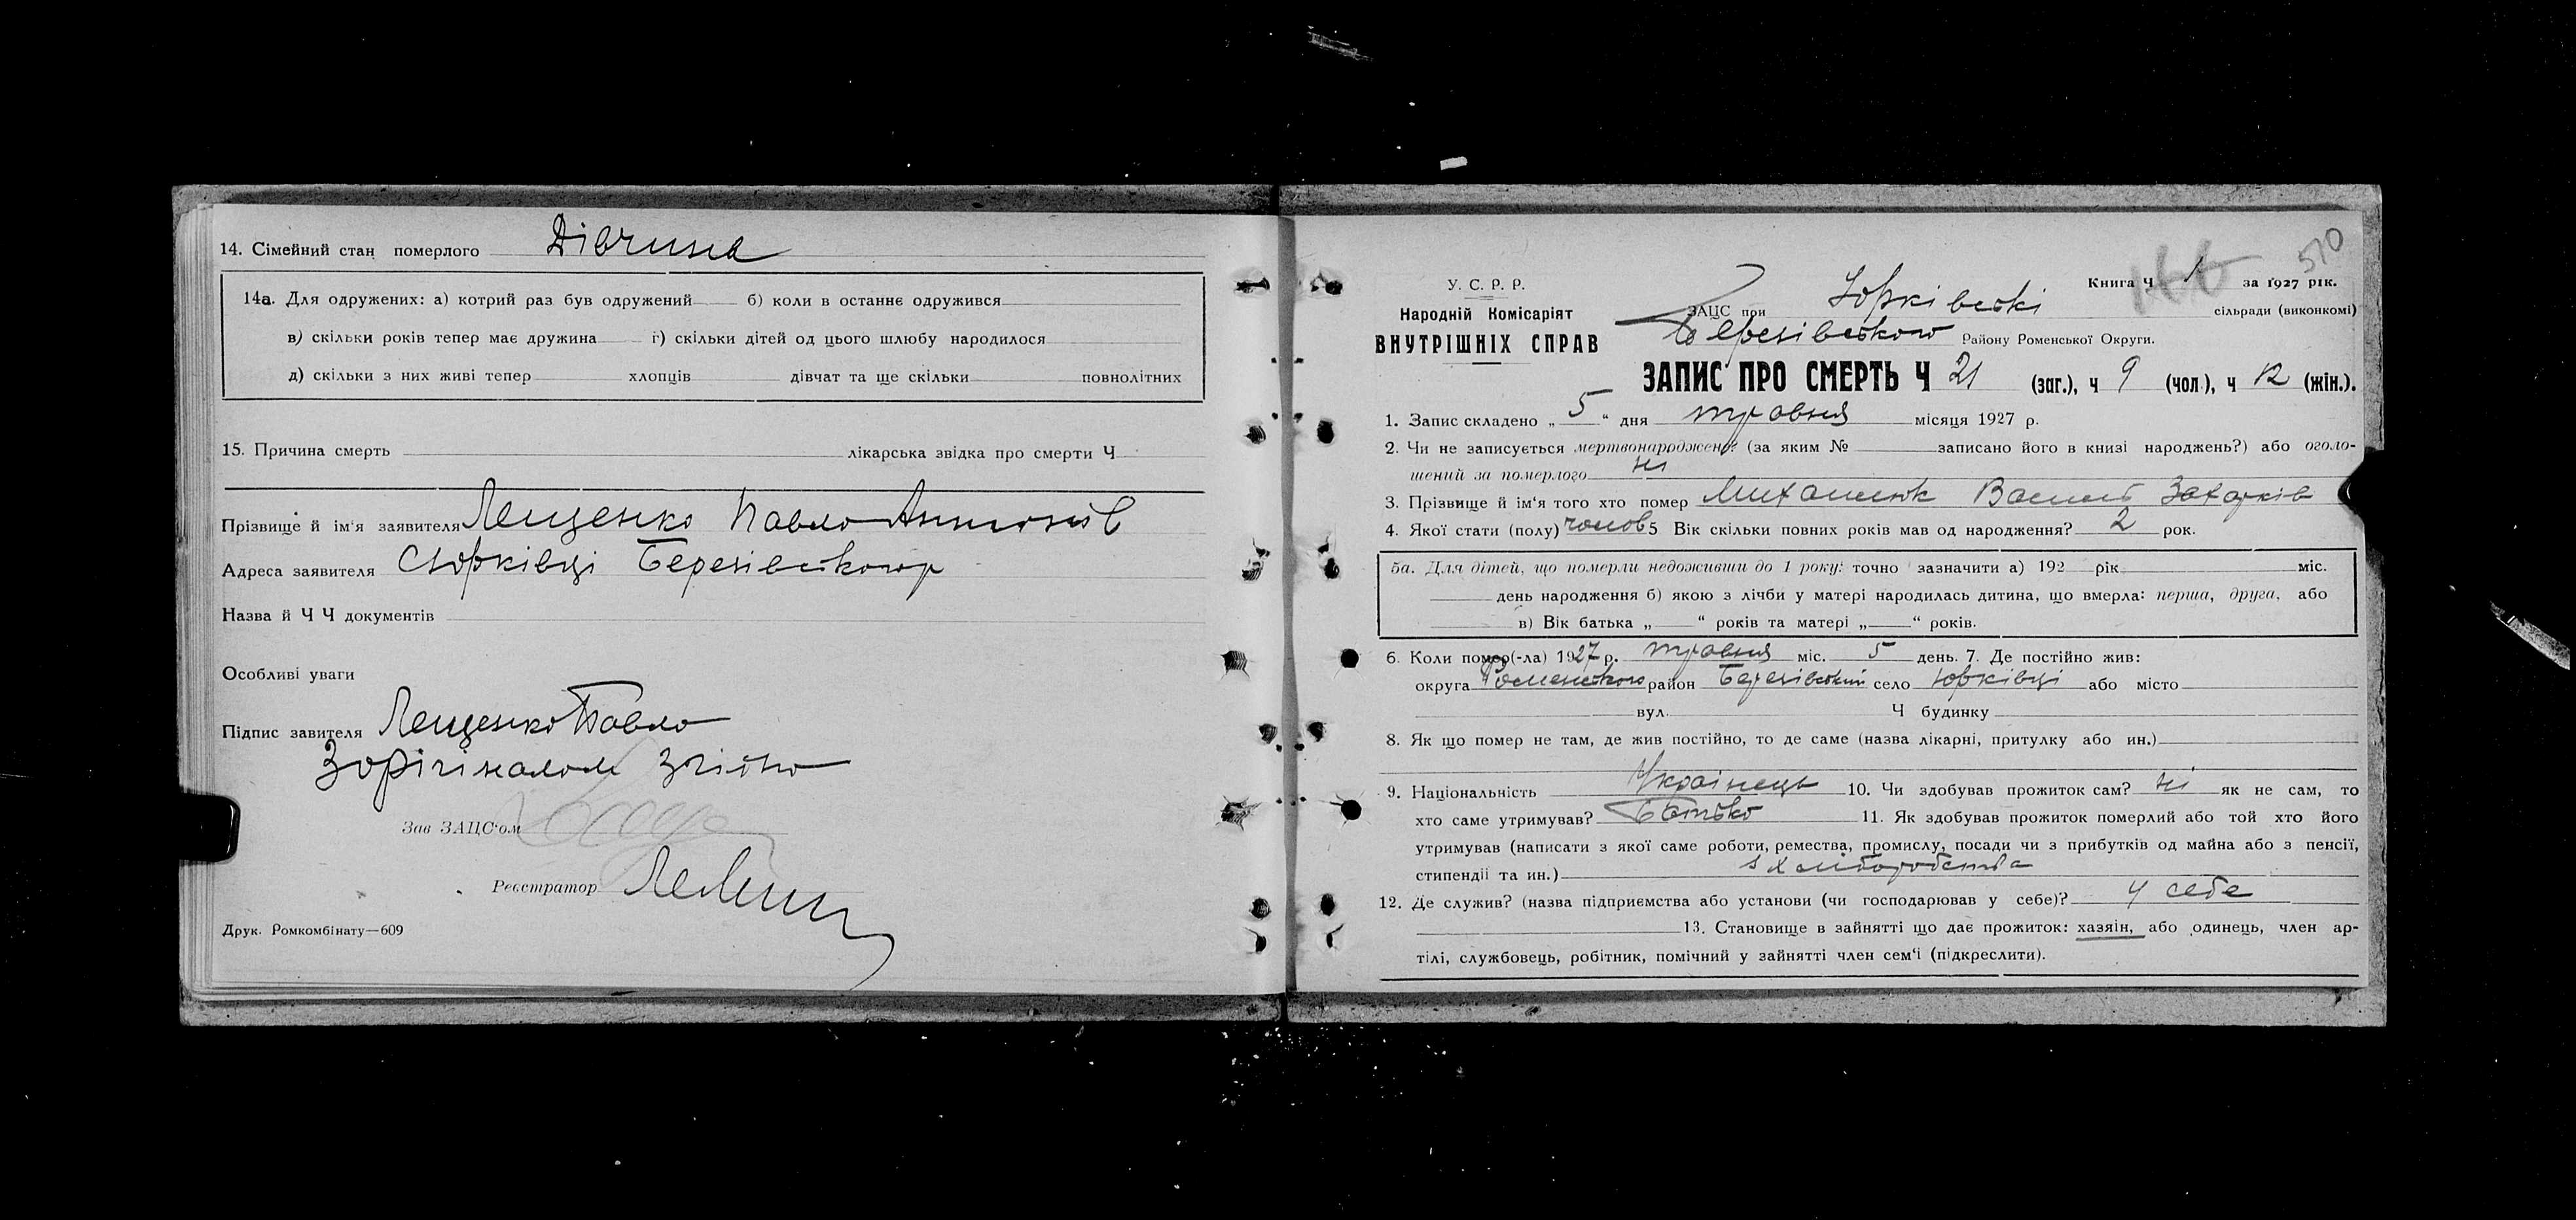 14. Сімейний стан померлого Дівчина
14а. Для одружених: а) котрий раз був одружений б) коли в останнє одружився
в) скільки років тепер має дружина г) скільки дітей од цього шлюбу народилося
д) скільки з них живі тепер хлопців дівчат та ще скільки повнолітних
15. Причина смерть лікарська звідка про смерти Ч
Прізвище й ім'я заявителя Лещенко Павло Антонів
Адреса заявителя С Юрківці Березівського р
Назва й Ч Ч документів
Особливі уваги
Підпис завителя Лещенко Павло
З орігіналом згідно
Зав ЗАЦС'ом
Реєстратор
Друк. Ромкомбінату—609
510
У. С. Р. Р.
Народній Комісаріят
ВНУТРІШНІХ СПРАВ
Книга Ч 1 за 1927 рік.
ЗАЦС при Юрківські сільради (виконкомі)
Березівського Району Роменської Округи.
ЗАПИС ПРО СМЕРТЬ Ч 21 (заг.), ч 9 (чол.), ч 12 (жін.).
1. Запис складено „ 5 “ дня травня місяця 1927 р.
2. Чи не записується мертвонароджене: (за яким № записано його в книзі народжень?) або оголо-
шений за померлого ні
3. Прізвище й ім'я того хто помер Михайлик Василь Захарків
4. Якої стати (полу) чолов 5 Вік скільки повних років мав од народження? 2 рок.
5а. Для дітей, що померли недоживши до 1 року: точно зазначити а) 192 рік міс.
день народження б) якою з лічби у матері народилась дитина, що вмерла: перша, друга, або
в) Вік батька „ “ років та матері „ “ років.
6. Коли помер(-ла) 1927 р. травня міс. 5 день. 7. Де постійно жив:
округа Роменського район Березівський село Юрківці або місто
вул. Ч будинку
8. Як що помер не там, де жив постійно, то де саме (назва лікарні, притулку або ин.)
9. Національність Українець 10. Чи здобував прожиток сам? ні як не сам, то
хто саме утримував? Батько 11. Як здобував прожиток померлий або той хто його
утримував (написати з якої саме роботи, ремества, промислу, посади чи з прибутків од майна або з пенсії,
стипендії та ин.) з хліборобства
12. Де служив? (назва підприємства або установи (чи господарював у себе)? у себе
13. Становище в зайнятті що дає прожиток: хазяін, або одинець, член ар-
тілі, службовець, робітник, помічний у зайнятті член сем'ї (підкреслити).